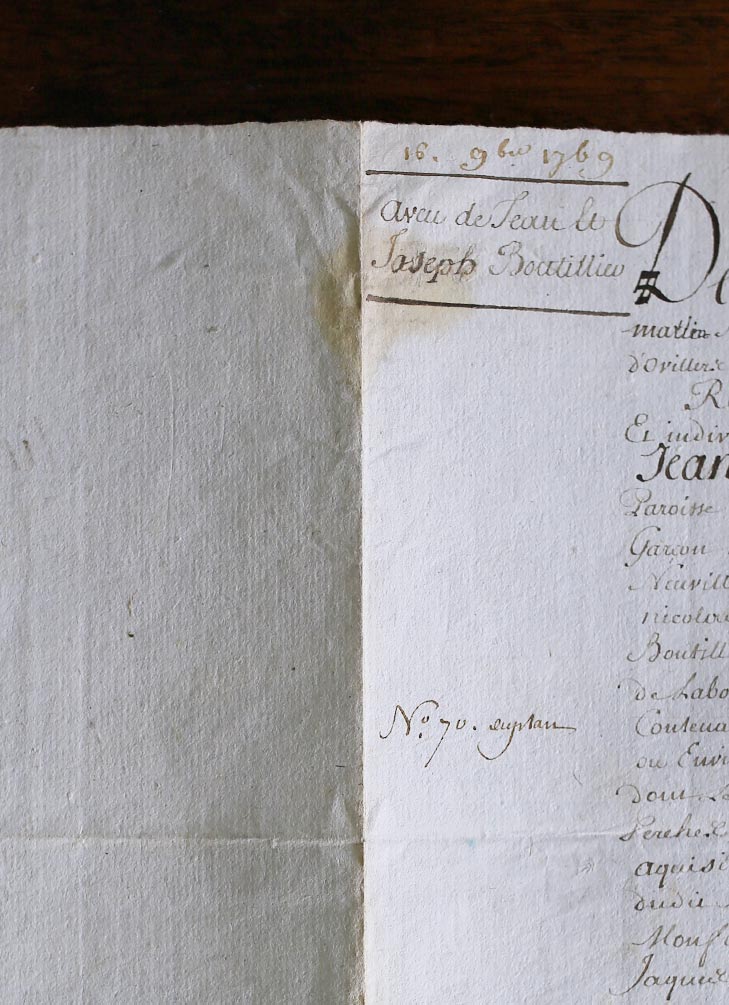 16. 9bre 1769
aveu de Jean et
Joseph Boutillier
De
martin
d'Oviller
Re
Et indiv
Jean
Paroisse
Garçon
Neuvill
nicolas
Boutill
de Labo
Contena
ou Envi
dont
No. 70. du plan
Perches
aquisi
dudit
Monf
Jaques